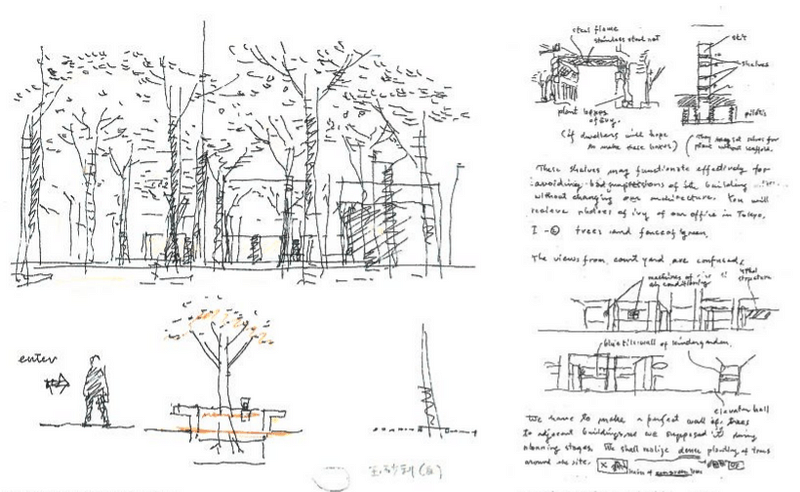 enter
steel flame
stainless steel net
plant boxes
of ivy.
(if dwellers will hope
to make these boxes)
shelves
pilotis
These shelves may functionate effectively for
avoiding bad impressions of the building
without changing our architecture. You will
recieve photoes of ivy of our office in Tokyo.
trees and fence of green.
The views from court yard are confused,
machines of
air conditioning
structure
blue tile wall of kindergarden.
elevator hall
We have to make a perfect wall of trees
to adjacent buildings, as we supposed it during
planning stages. We shall realize dense planting of trees
around the site.